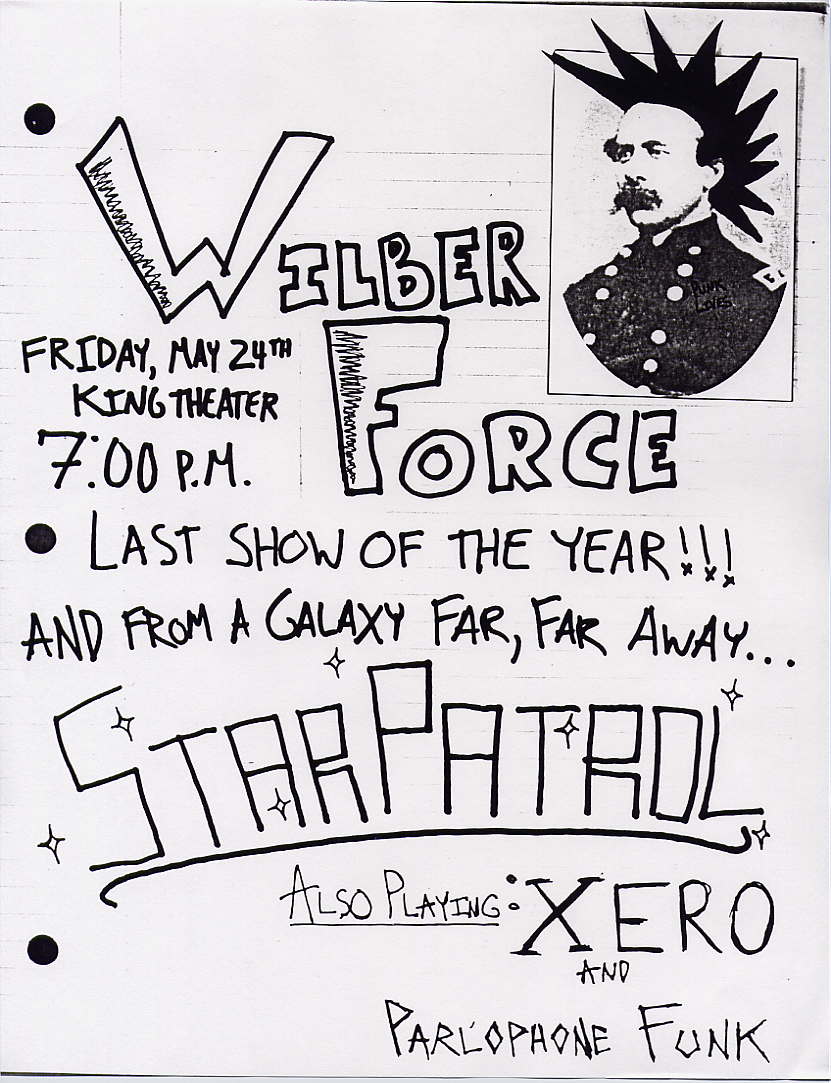 WILBER
FORCE
FRIDAY, MAY 24TH
KING THEATER
7:00 P.M.
PUNK
LOVES
LAST SHOW OF THE YEAR!!!
AND FROM A GALAXY FAR, FAR AWAY...
STAR PATROL
ALSO PLAYING: XERO
AND
PARLOPHONE FUNK